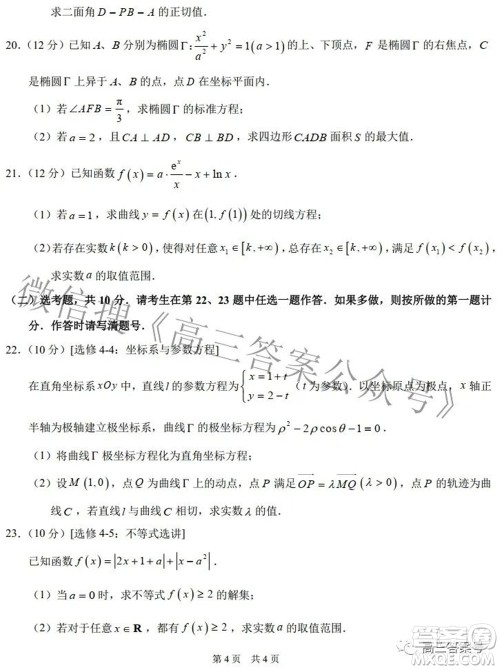 求二面角 D－PB－A 的正切值．
20．（12 分）已知 A、B 分别为椭圆 Γ: x²/a² + y² = 1 (a > 1) 的上、下顶点，F 是椭圆 Γ 的右焦点，C
是椭圆 Γ 上异于 A、B 的点，点 D 在坐标平面内．
（1）若 ∠AFB = π/3，求椭圆 Γ 的标准方程；
（2）若 a = 2，且 CA ⊥ AD，CB ⊥ BD，求四边形 CADB 面积 S 的最大值．
21．（12 分）已知函数 f(x) = a · eˣ/x − x + ln x．
（1）若 a = 1，求曲线 y = f(x) 在 (1, f(1)) 处的切线方程；
（2）若存在实数 k (k > 0)，使得对任意 x₁ ∈ [k.+∞)，总存在 x₂ ∈ [k.+∞)，满足 f(x₁) < f(x₂)，
求实数 a 的取值范围．
（二）选考题，共 10 分．请考生在第 22、23 题中任选一题作答．如果多做，则按所做的第一题计
分．作答时请写清题号．
22．（10 分）[选修 4-4：坐标系与参数方程]
在直角坐标系 xOy 中，直线 l 的参数方程为 { x = 1 + t y = 2 − t （t 为参数）．以坐标原点为极点，x 轴正
半轴为极轴建立极坐标系，曲线 Γ 的极坐标方程为 ρ² − 2ρcosθ − 1 = 0．
（1）将曲线 Γ 极坐标方程化为直角坐标方程；
（2）设 M(1,0)，点 Q 为曲线 Γ 上的动点，点 P 满足 OP = λMQ (λ > 0)，点 P 的轨迹为曲
线 C，若直线 l 与曲线 C 相切，求实数 λ 的值．
23．（10 分）[选修 4-5：不等式选讲]
已知函数 f(x) = |2x + 1 + a| + |x − a²|．
（1）当 a = 0 时，求不等式 f(x) ≥ 2 的解集；
（2）若对于任意 x ∈ R，都有 f(x) ≥ 2，求实数 a 的取值范围．
第 4 页 共 4 页
微信搜《高三答案公众号》
高三答案号